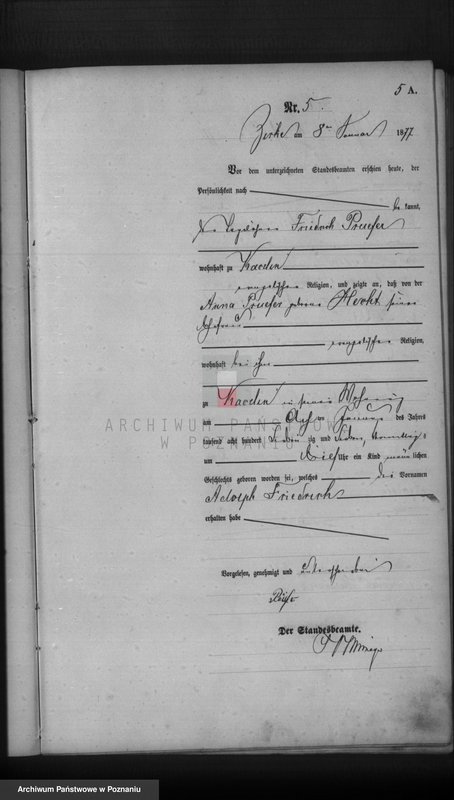 5 A.
Nr. 5.
Zirke am 8ten Januar 1877
Vor dem unterzeichneten Standesbeamten erschien heute, der
Persönlichkeit nach
be kannt,
Friedrich Pruefer
wohnhaft zu Kaeden
evangelischer Religion, und zeigte an, daß von der
Anna Pruefer geborne Hecht seiner
Ehefrau
evangelischer Religion,
wohnhaft bei ihm
zu Kaeden in seiner Wohnung
am ten Januar des Jahres
tausend acht hundert sieben zig und sieben, Vormittags
um drei Uhr ein Kind männlichen
Geschlechts geboren worden sei, welches die Vornamen
Adolph Friedrich
erhalten habe
Vorgelesen, genehmigt und
Der Standesbeamte.
ARCHIWUM PAŃSTWOWE
W POZNANIU
Archiwum Państwowe w Poznaniu